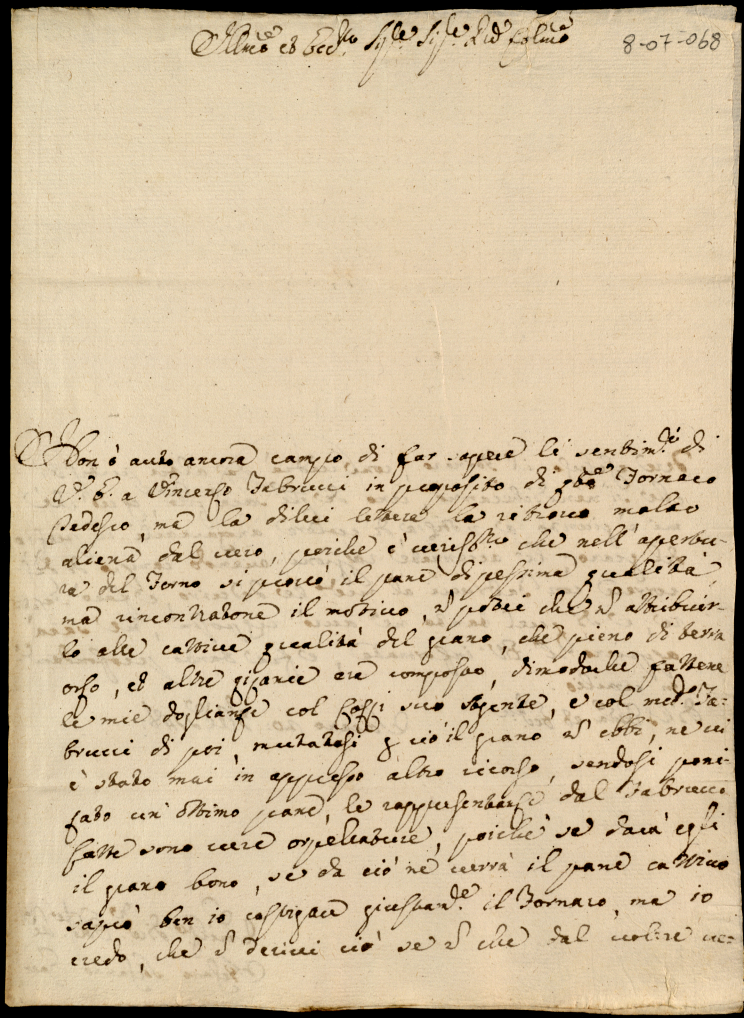 Ill.mo et Ecc.mo Sig.re Sig.re P.ron Col.mo
8-07-068
Non ò auto ancora campo di far sapere li sentim.ti di
V. E. a Vincenzo Fabrucci in proposito di Fornaro
Tedesco, ma la di lei lettera la ritrovo molto
aliena dal vero, perche è veriss.mo che nell'apertu-
ra del Forno si provò il pane di pessima qualità
ma rincontratone il motivo, potei che attribuir-
lo alle cattive qualità del grano, che pieno di terra
orzo, et altre gizanie era composto, dimodoche fattene
le mie doglianze col Cozzi suo Agente, e col med.o Fa-
brucci di poi, mutatosi ciò il grano ebbi, ne vi
è stato mai in appresso altro ricorso, sendosi pani-
fato un' ottimo pane, le rappresentanze dal Fabrucci
fatte sono vere orpellature, poiche se darà egli
il grano bono, se da ciò ne verrà il pane cattivo
saprò ben io castigare giustam.te il Fornaro, ma io
credo, che derivi ciò se che dal volere ve-